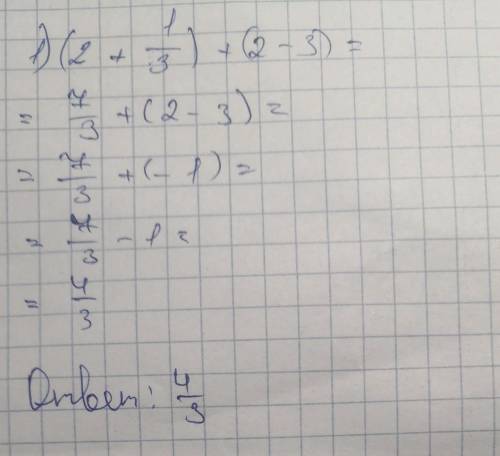 1) (2 + 1/3) + (2 - 3) =
= 7/3 + (2 - 3) =
= 7/3 + (- 1) =
= 7/3 - 1 =
= 4/3
Ответ: 4/3